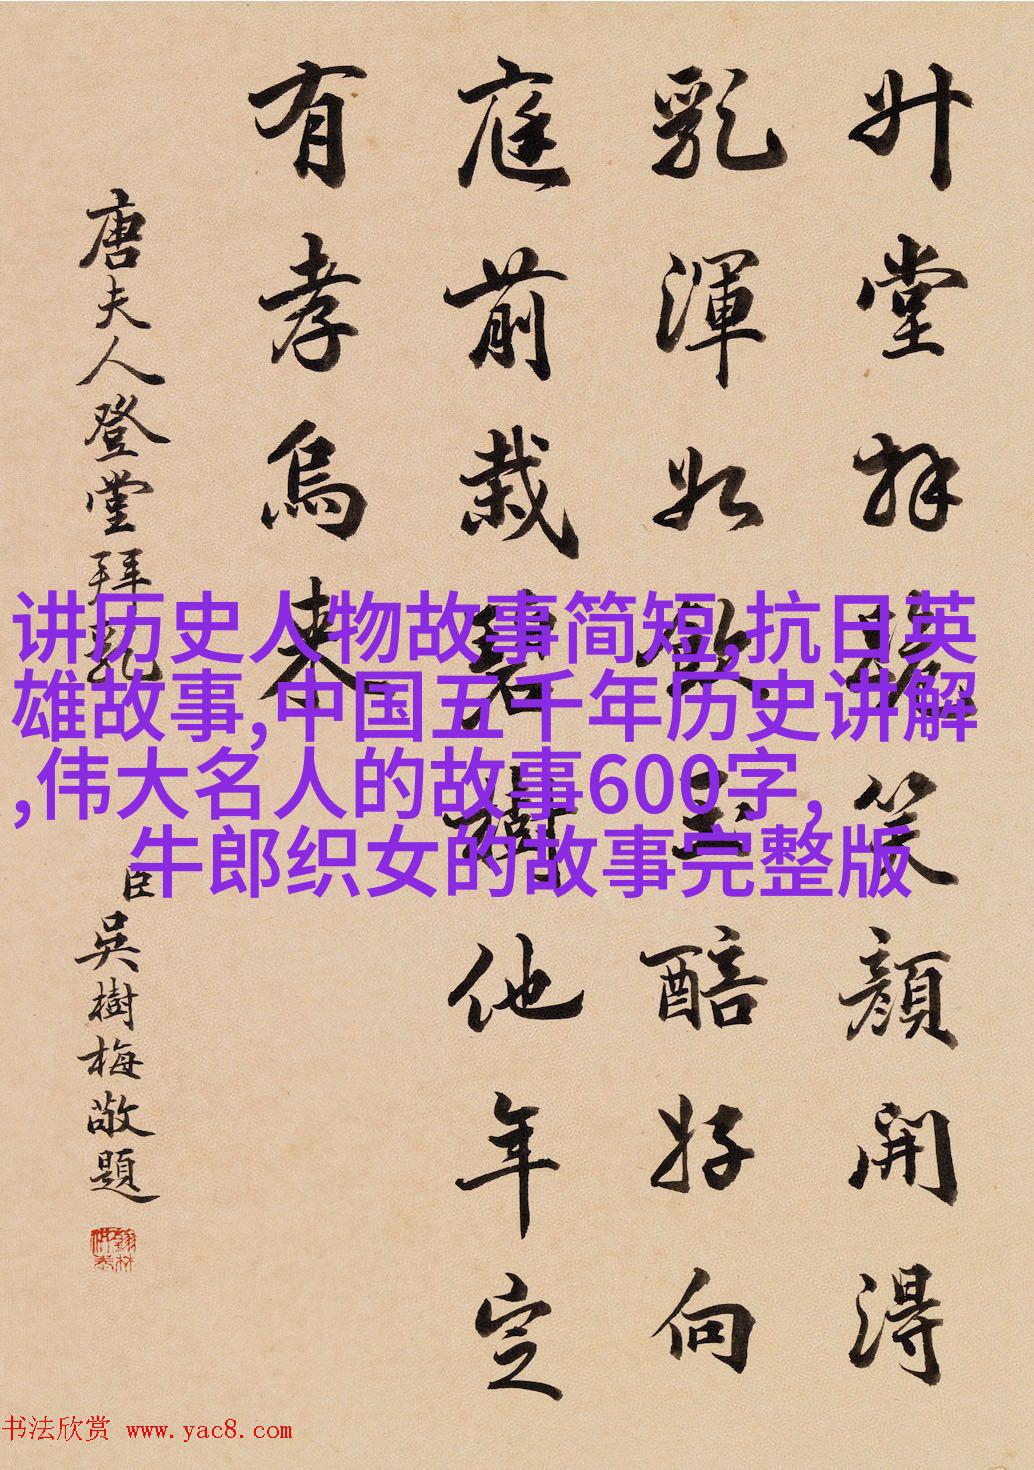 升堂拜罷笑顏開得
乳渾如飲玉醅好向
庭前栽碧樹他年定
有孝烏來
唐夫人登堂拜乳
臣吳樹梅敬題
讲历史人物故事简短,抗日英
雄故事,中国五千年历史讲解
,伟大名人的故事600字,
牛郎织女的故事完整版
书法欣赏 www.yac8.com